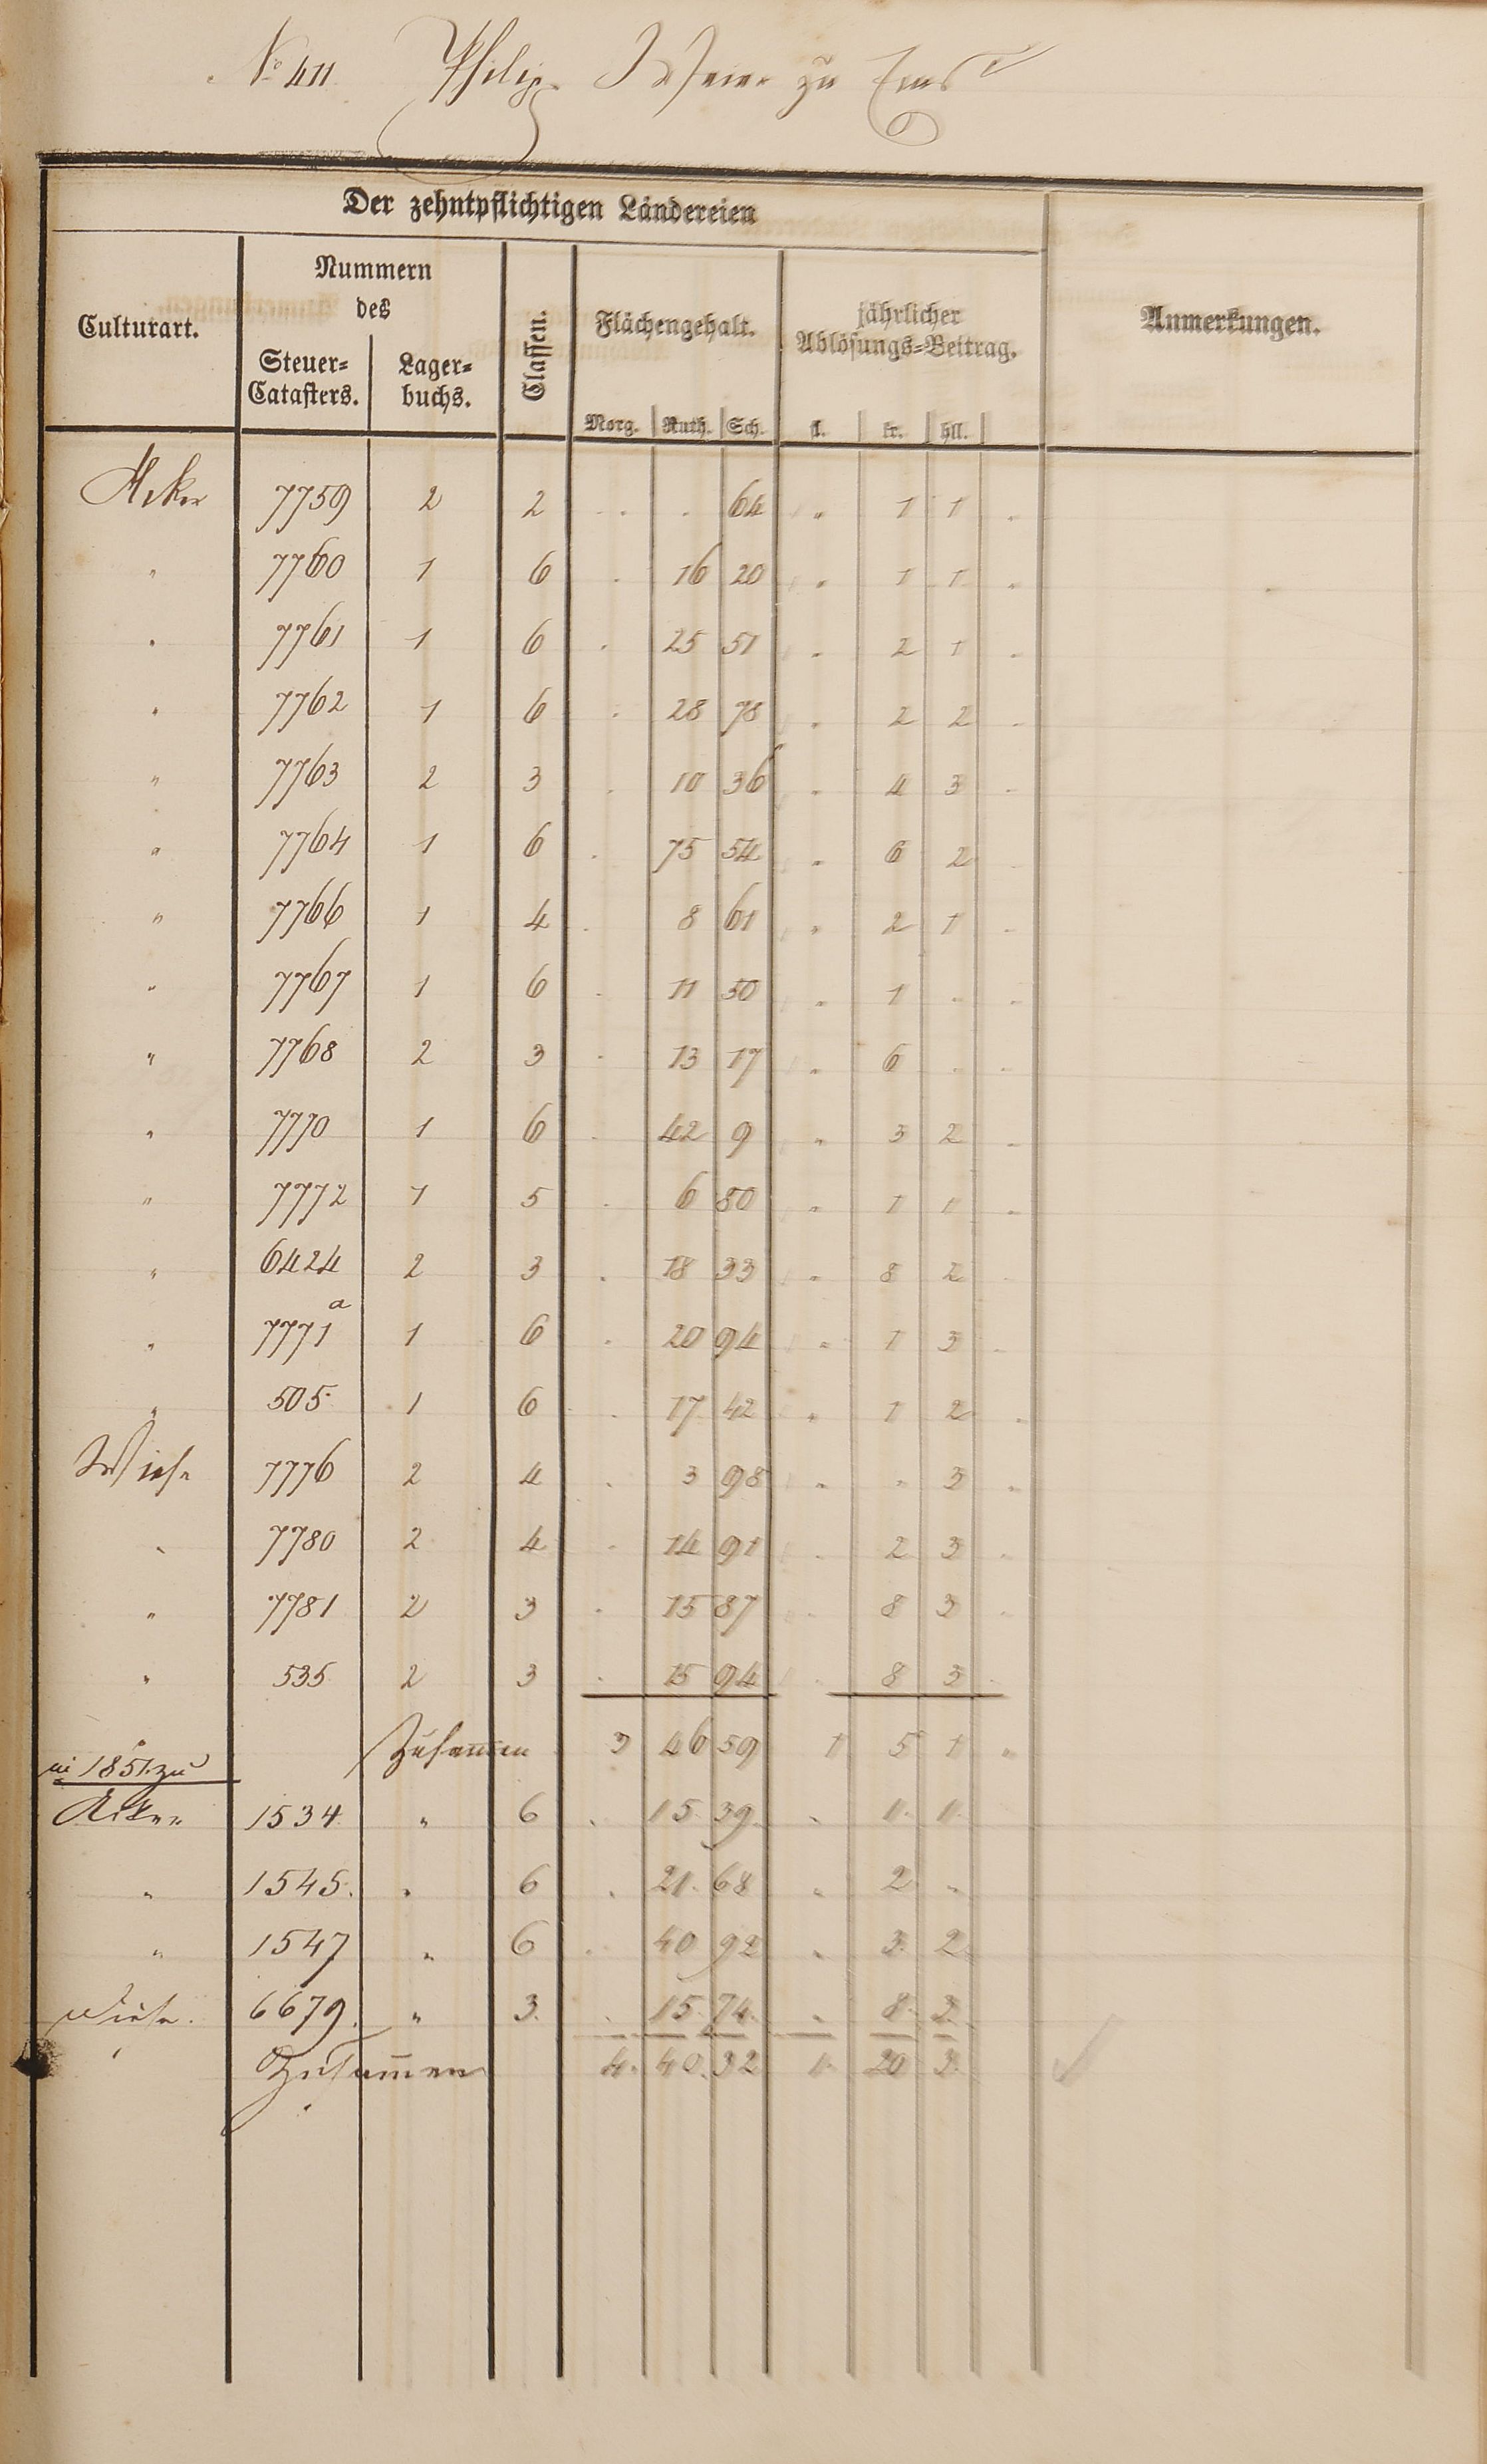 No 411. Philip Weier zu Ems
Der zehntpflichtigen Ländereien
Culturart. Nummern des Steuer=Catasters. Lager=buchs. Classen. Flächengehalt. Morg. Ruth. Sch. jährlicher Ablösungs=Beitrag. fl. kr. hll. Anmerkungen.
Acker 7759 2 2 . . 64 " 1 1 "
" 7760 1 6 . 16 20 " 1 1 "
" 7761 1 6 . 25 51 " 2 1 "
" 7762 1 6 . 28 78 " 2 2 "
" 7763 2 3 . 10 36 " 4 3 "
" 7764 1 6 . 75 54 " 6 2
" 7766 1 4 . 8 61 " 2 1 "
" 7767 1 6 . 11 50 " 1 . "
" 7768 2 3 . 13 17 " 6 . .
" 7770 1 6 . 42 9 " 3 2 "
" 7772 1 5 . 6 80 " 1 1 "
" 6424 2 3 . 18 33 " 8 2
" 7771a 1 6 . 20 94 " 1 3 .
" 505 1 6 . 17 42 " 1 2 .
Wiese 7776 2 4 . 3 98 " " 3 "
" 7780 2 4 . 14 91 . 2 3 .
" 7781 2 3 . 15 87 . 8 3 .
" 535 2 3 . 15 94 . 8 3 .
Zusammen 3 46 59 1 5 1 "
in 1851. zu
Acker 1534 " 6 . 15. 39. " 1. 1.
" 1545. " 6 . 21. 68 " 2 "
" 1547 " 6 . 40 92 " 3. 2.
Wiese. 6679. " 3. . 15. 74. " 8. 3.
Zusammen 4. 40. 32 1. 20 3.